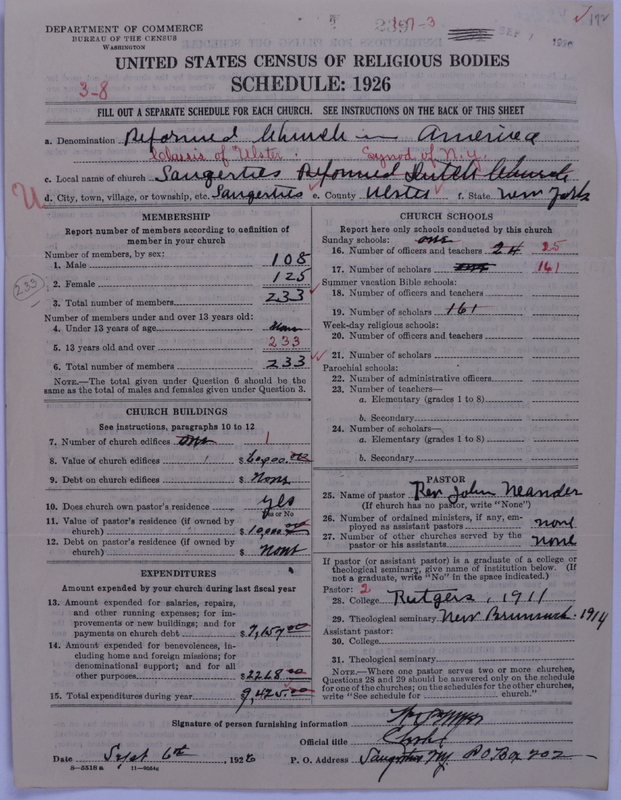 DEPARTMENT OF COMMERCE
BUREAU OF THE CENSUS
WASHINGTON
2397-3
SEP 1926
192
UNITED STATES CENSUS OF RELIGIOUS BODIES
3-8
SCHEDULE: 1926
FILL OUT A SEPARATE SCHEDULE FOR EACH CHURCH. SEE INSTRUCTIONS ON THE BACK OF THIS SHEET
a. Denomination Reformed Church in America
Classis of Ulster. Synod of N.Y.
c. Local name of church Saugerties Reformed Dutch Church
d. City, town, village, or township, etc. Saugerties e. County Ulster f. State New York
MEMBERSHIP
Report number of members according to definition of
member in your church
Number of members, by sex:
1. Male 108
2. Female 125
3. Total number of members 233
233
Number of members under and over 13 years old:
4. Under 13 years of age None
5. 13 years old and over 233
6. Total number of members 233
NOTE.—The total given under Question 6 should be
same as the total of males and females given under Question 3.
CHURCH BUILDINGS
See instructions, paragraphs 10 to 12
7. Number of church edifices one 1
8. Value of church edifices $60,000.00
9. Debt on church edifices $ None
10. Does church own pastor's residence yes
Yes or No
11. Value of pastor's residence (if owned by
church) $10,000.00
12. Debt on pastor's residence (if owned by
church) $ None
EXPENDITURES
Amount expended by your church during last fiscal year
13. Amount expended for salaries, repairs,
and other running expenses; for im-
provements or new buildings; and for
payments on church debt $7,157.00
14. Amount expended for benevolences, in-
cluding home and foreign missions; for
denominational support; and for all
other purposes $2268.00
15. Total expenditures during year 9,425.00
CHURCH SCHOOLS
Report here only schools conducted by this church
Sunday schools: one
16. Number of officers and teachers 24 25
17. Number of scholars 161
Summer vacation Bible schools:
18. Number of officers and teachers
19. Number of scholars 161
Week-day religious schools:
20. Number of officers and teachers
21. Number of scholars
Parochial schools:
22. Number of administrative officers
23. Number of teachers—
a. Elementary (grades 1 to 8)
b. Secondary
24. Number of scholars—
a. Elementary (grades 1 to 8)
b. Secondary
PASTOR
25. Name of pastor Rev John Neander
(If church has no pastor, write "None")
26. Number of ordained ministers, if any, em-
ployed as assistant pastors none
27. Number of other churches served by the
pastor or his assistants none
If pastor (or assistant pastor) is a graduate of a college or
theological seminary, give name of institution below. (If
not a graduate, write "No" in the space indicated.)
Pastor: 2
28. College Rutgers, 1911
29. Theological seminary New Brunswick. 1914
Assistant pastor:
30. College
31. Theological seminary
NOTE.—Where one pastor serves two or more churches,
Questions 28 and 29 should be answered only on the schedule
for one of the churches; on the schedules for the other churches,
write "See schedule for church."
Signature of person furnishing information
Official title Clerk
Date Sept 6th, 1926 P. O. Address Saugerties NY. PO Box 202
8-5518 a 11-9064